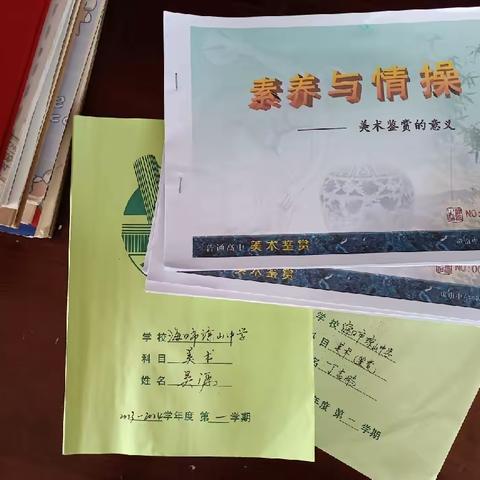 素养与情操
—— 美术鉴赏的意义
普通高中 美术鉴赏
NO:
美术鉴赏
学校 海口市琼山中学
科目 美术
姓名 吴源
2023-2024学年度 第一学期
学校 海口市琼山中学
目 美术(鉴赏)
名
年度 第一学期